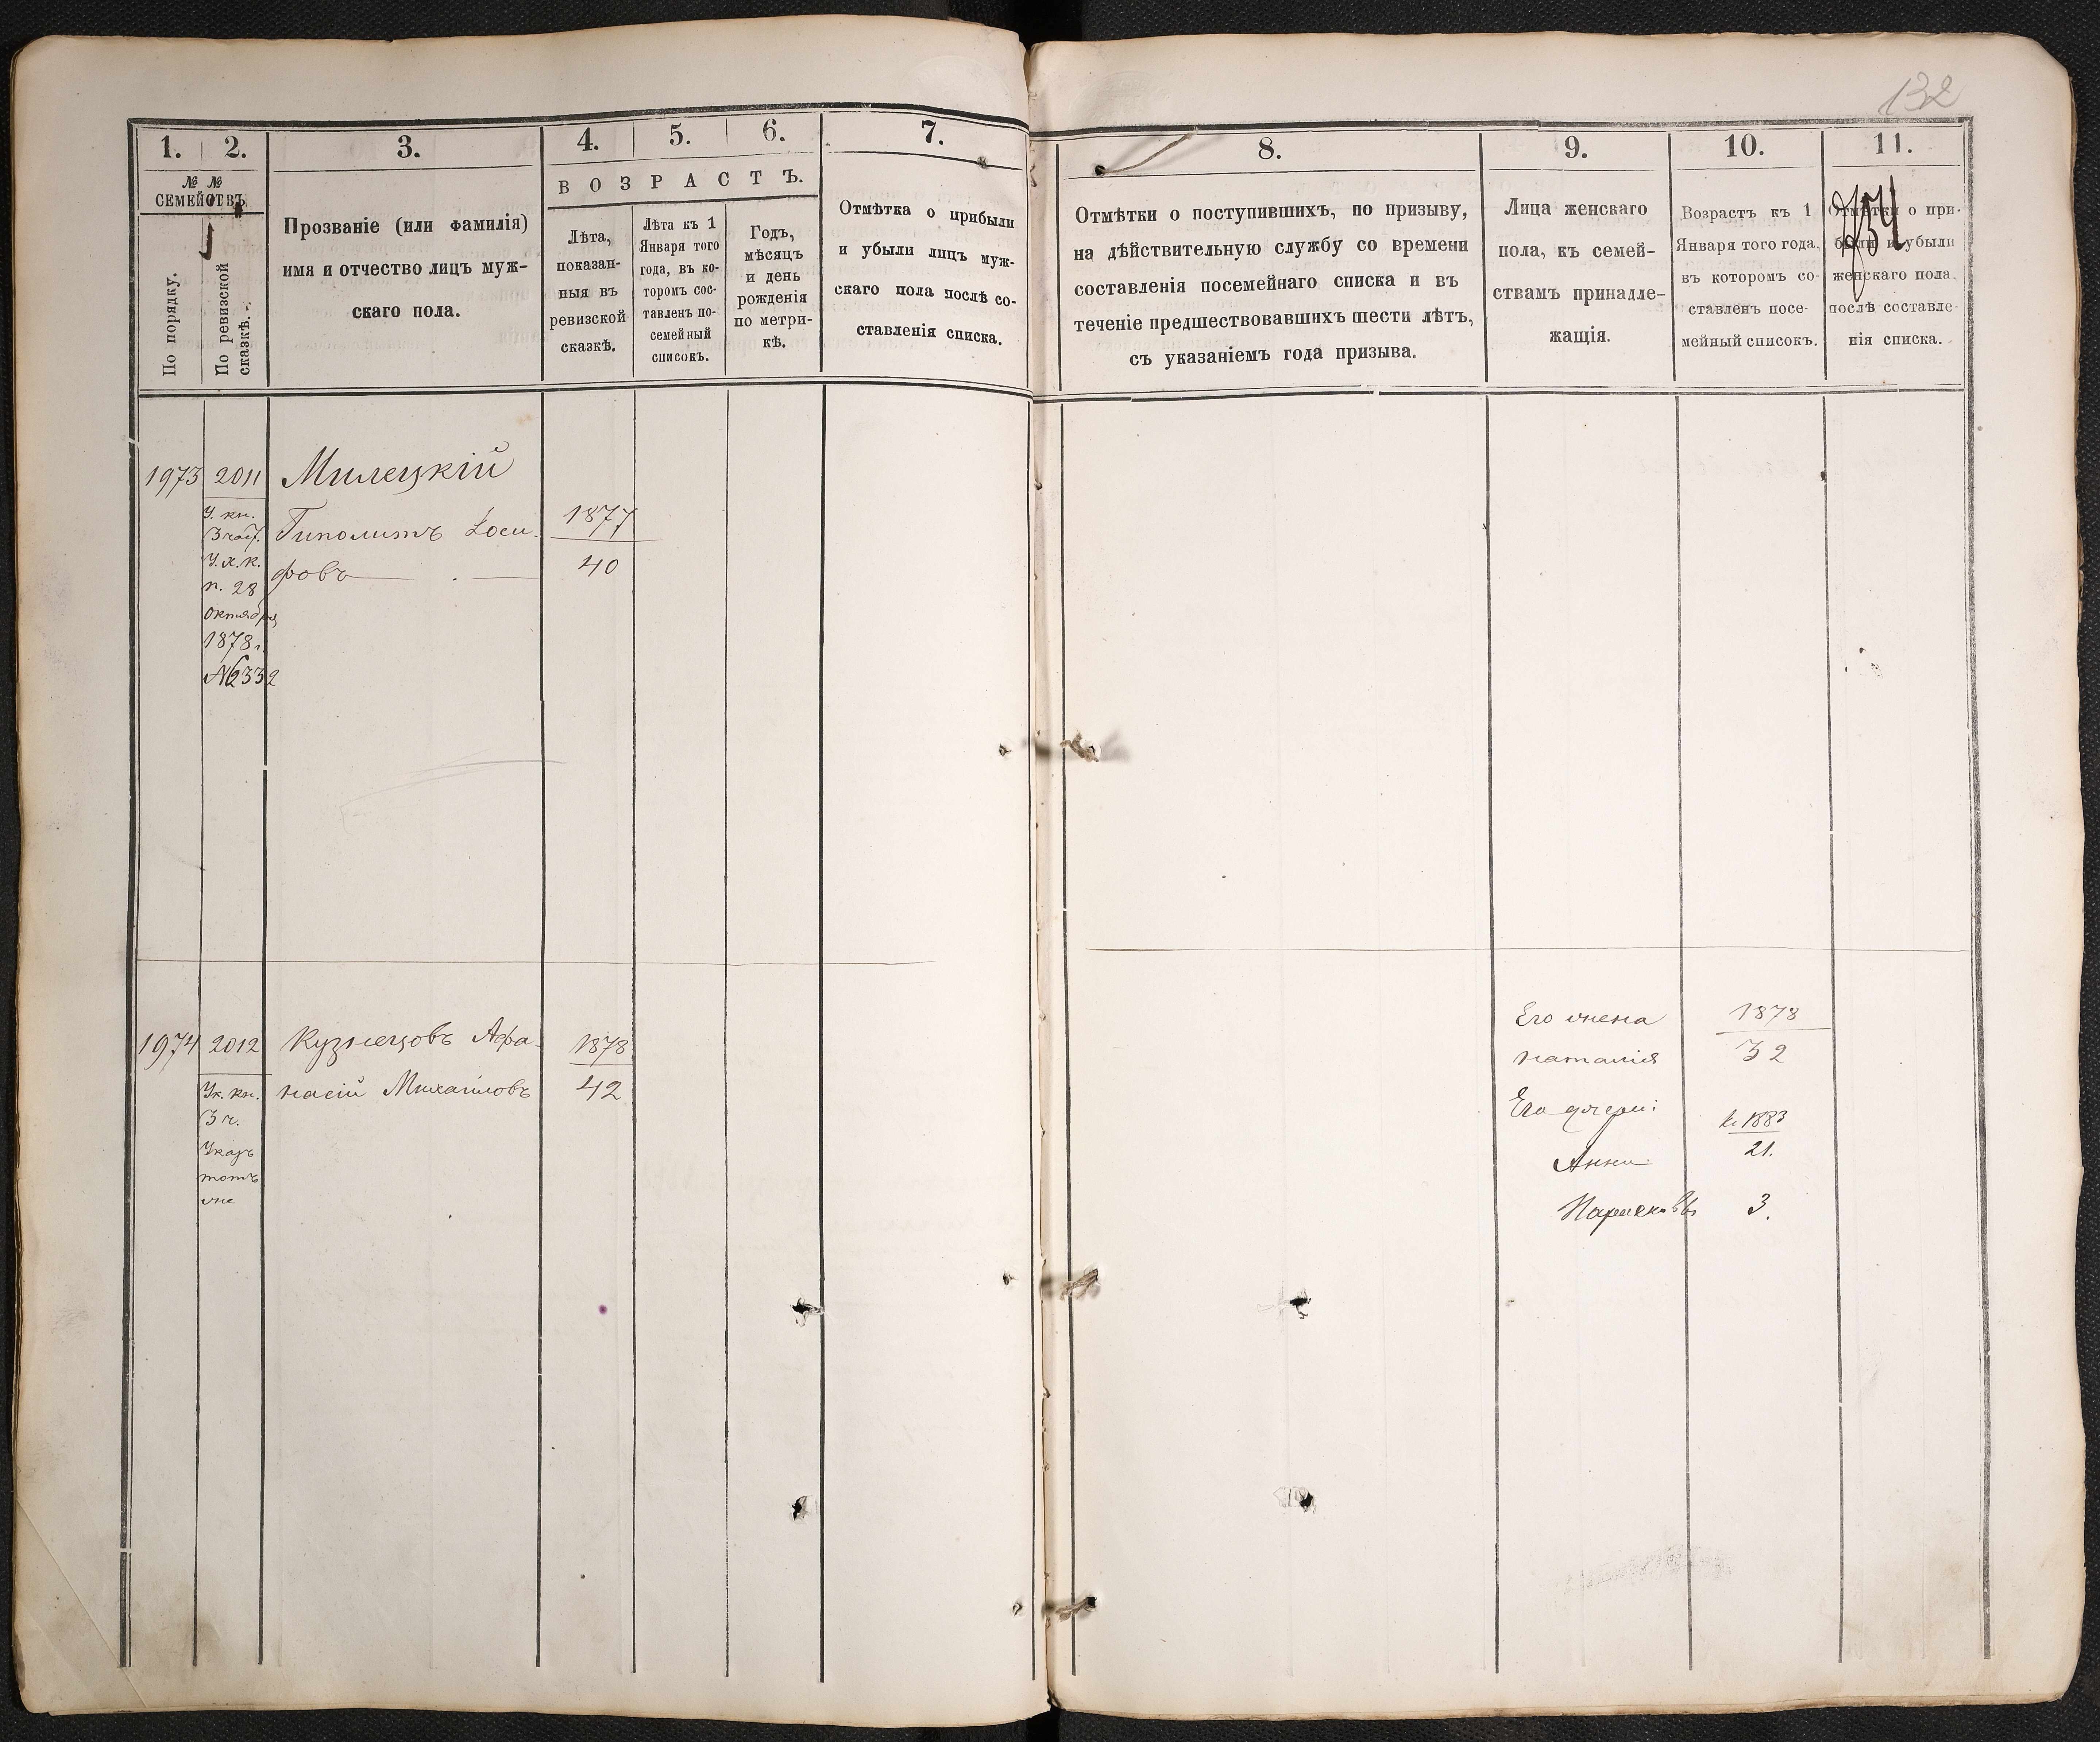 132
1. 2. 3. 4. 5. 6. 7.
№ №
СЕМЕЙСТВЪ
По порядку.
По ревизской
сказкѣ.
Прозваніе (или фамилія)
имя и отчество лицъ муж-
скаго пола.
ВОЗРАСТЪ.
Лѣта,
показан-
ныя въ
ревизской
сказкѣ.
Лѣта къ 1
Января того
года, въ ко-
торомъ сос-
тавленъ по-
семейный
списокъ.
Годъ,
мѣсяцъ
и день
рожденія
по метри-
кѣ.
Отмѣтка о прибыли
и убыли лицъ муж-
скаго пола послѣ со-
ставленія списка.
8. 9. 10. 11.
Отмѣтки о поступившихъ, по призыву,
на дѣйствительную службу со времени
составленія посемейнаго списка и въ
теченіе предшествовавшихъ шести лѣтъ,
съ указаніемъ года призыва.
Лица женскаго
пола, къ семей-
ствамъ принадле-
жащія.
Возрастъ къ 1
Января того года,
въ которомъ со-
ставленъ посе-
мейный списокъ.
Отмѣтки о при-
были и убыли
женскаго пола
послѣ составле-
нія списка.
1973 2011 Милецкій
У. кн.
3 част.
У. к. к.
п. 28
октября
1878 г.
№ 2332
Гиполитъ Іоси-
фовъ
1877
40
1974 2012 Кузнецовъ Афа-
насій Михайловъ
1878
42
Ук. кн.
3 ч.
Указъ
тотъ
же
Его жена
Наталія
1878
32
Его дочери:
Анна
к 1883
21.
Парасковья 3.